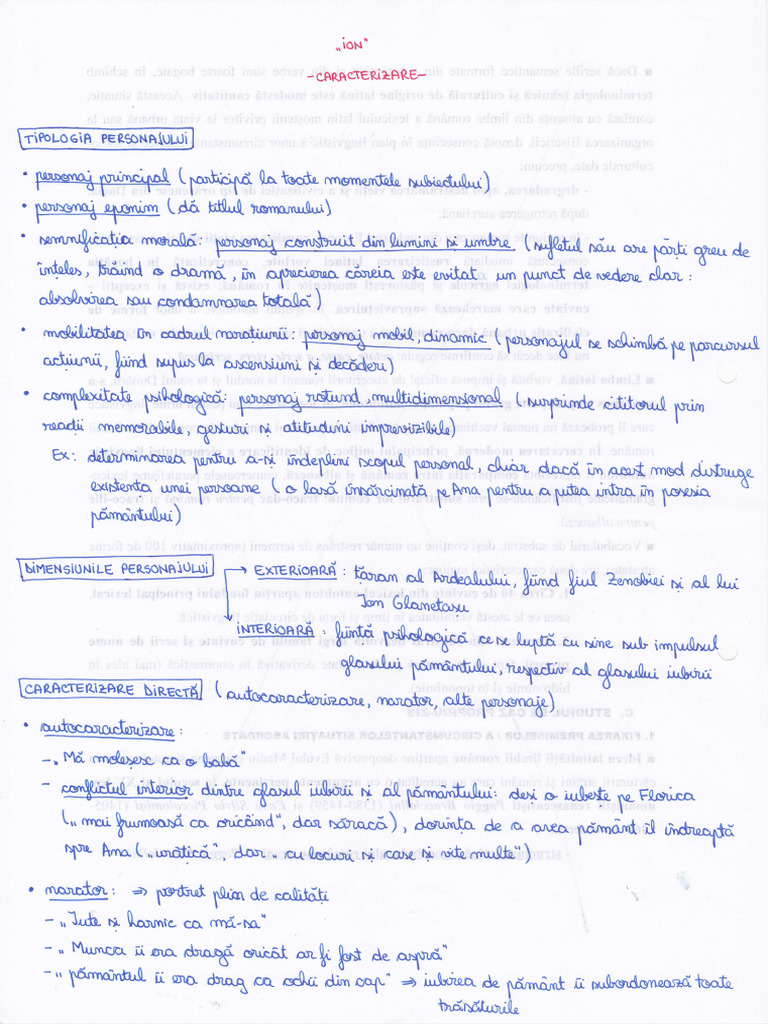 „ION"
-CARACTERIZARE-
TIPOLOGIA PERSONAJULUI
• personaj principal (participă la toate momentele subiectului)
• personaj eponim (dă titlul romanului)
• semnificația morală: personaj construit din lumini și umbre (sufletul său are părți greu de
înțeles, trăind o dramă, în aprecierea căreia este evitat un punct de vedere clar:
absolvirea sau condamnarea totală)
• mobilitatea în cadrul narațiunii: personaj mobil, dinamic (personajul se schimbă pe parcursul
acțiunii, fiind supus la ascensiuni și decăderi)
• complexitate psihologică: personaj rotund, multidimensional (surprinde cititorul prin
reacții memorabile, gesturi si atitudini imprevizibile)
Ex: determinarea pentru a-și îndeplini scopul personal, chiar dacă în acest mod distruge
existența unei persoane (o lasă însărcinată pe Ana pentru a putea intra în posesia
pământului)
DIMENSIUNILE PERSONAJULUI
→ EXTERIOARĂ: țăran al Ardealului, fiind fiul Zenobiei și al lui
Ion Glanetașu
INTERIOARĂ: ființă psihologică ce se luptă cu sine sub impulsul
glasului pământului, respectiv al glasului iubirii
CARACTERIZARE DIRECTĂ (autocaracterizare, narator, alte personaje)
• autocaracterizare:
-„Mă moleșesc ca o babă"
- conflictul interior dintre glasul iubirii și al pământului: deși o iubește pe Florica
(„mai frumoasă ca oricând", dar săracă), dorința de a avea pământ îl îndreaptă
spre Ana („urâțică", dar „cu locuri și case și vite multe")
• narator: ⇒ portret plin de calități
-„Iute și harnic ca mă-sa"
-„Munca îi era dragă oricât ar fi fost de aspră"
-„pământul îi era drag ca ochii din cap" ⇒ iubirea de pământ îi subordonează toate
trăsăturile